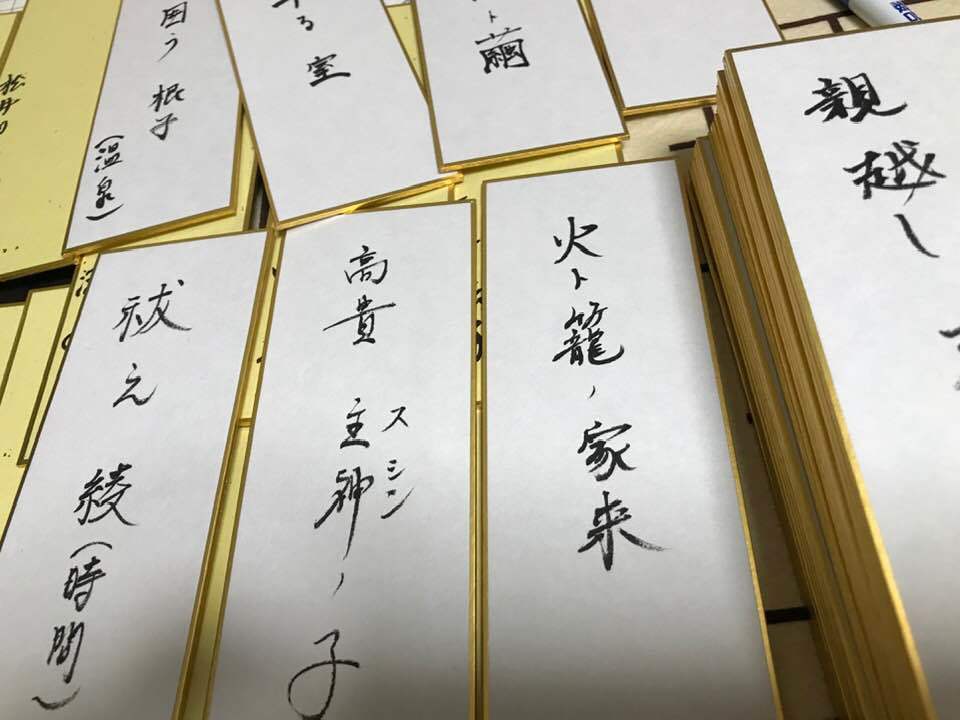 親越し
ト繭
る 室
う 根子
(温泉)
火ト籠ノ家来
高貴 主神ノ子
スシン
祓え 綾(時間)